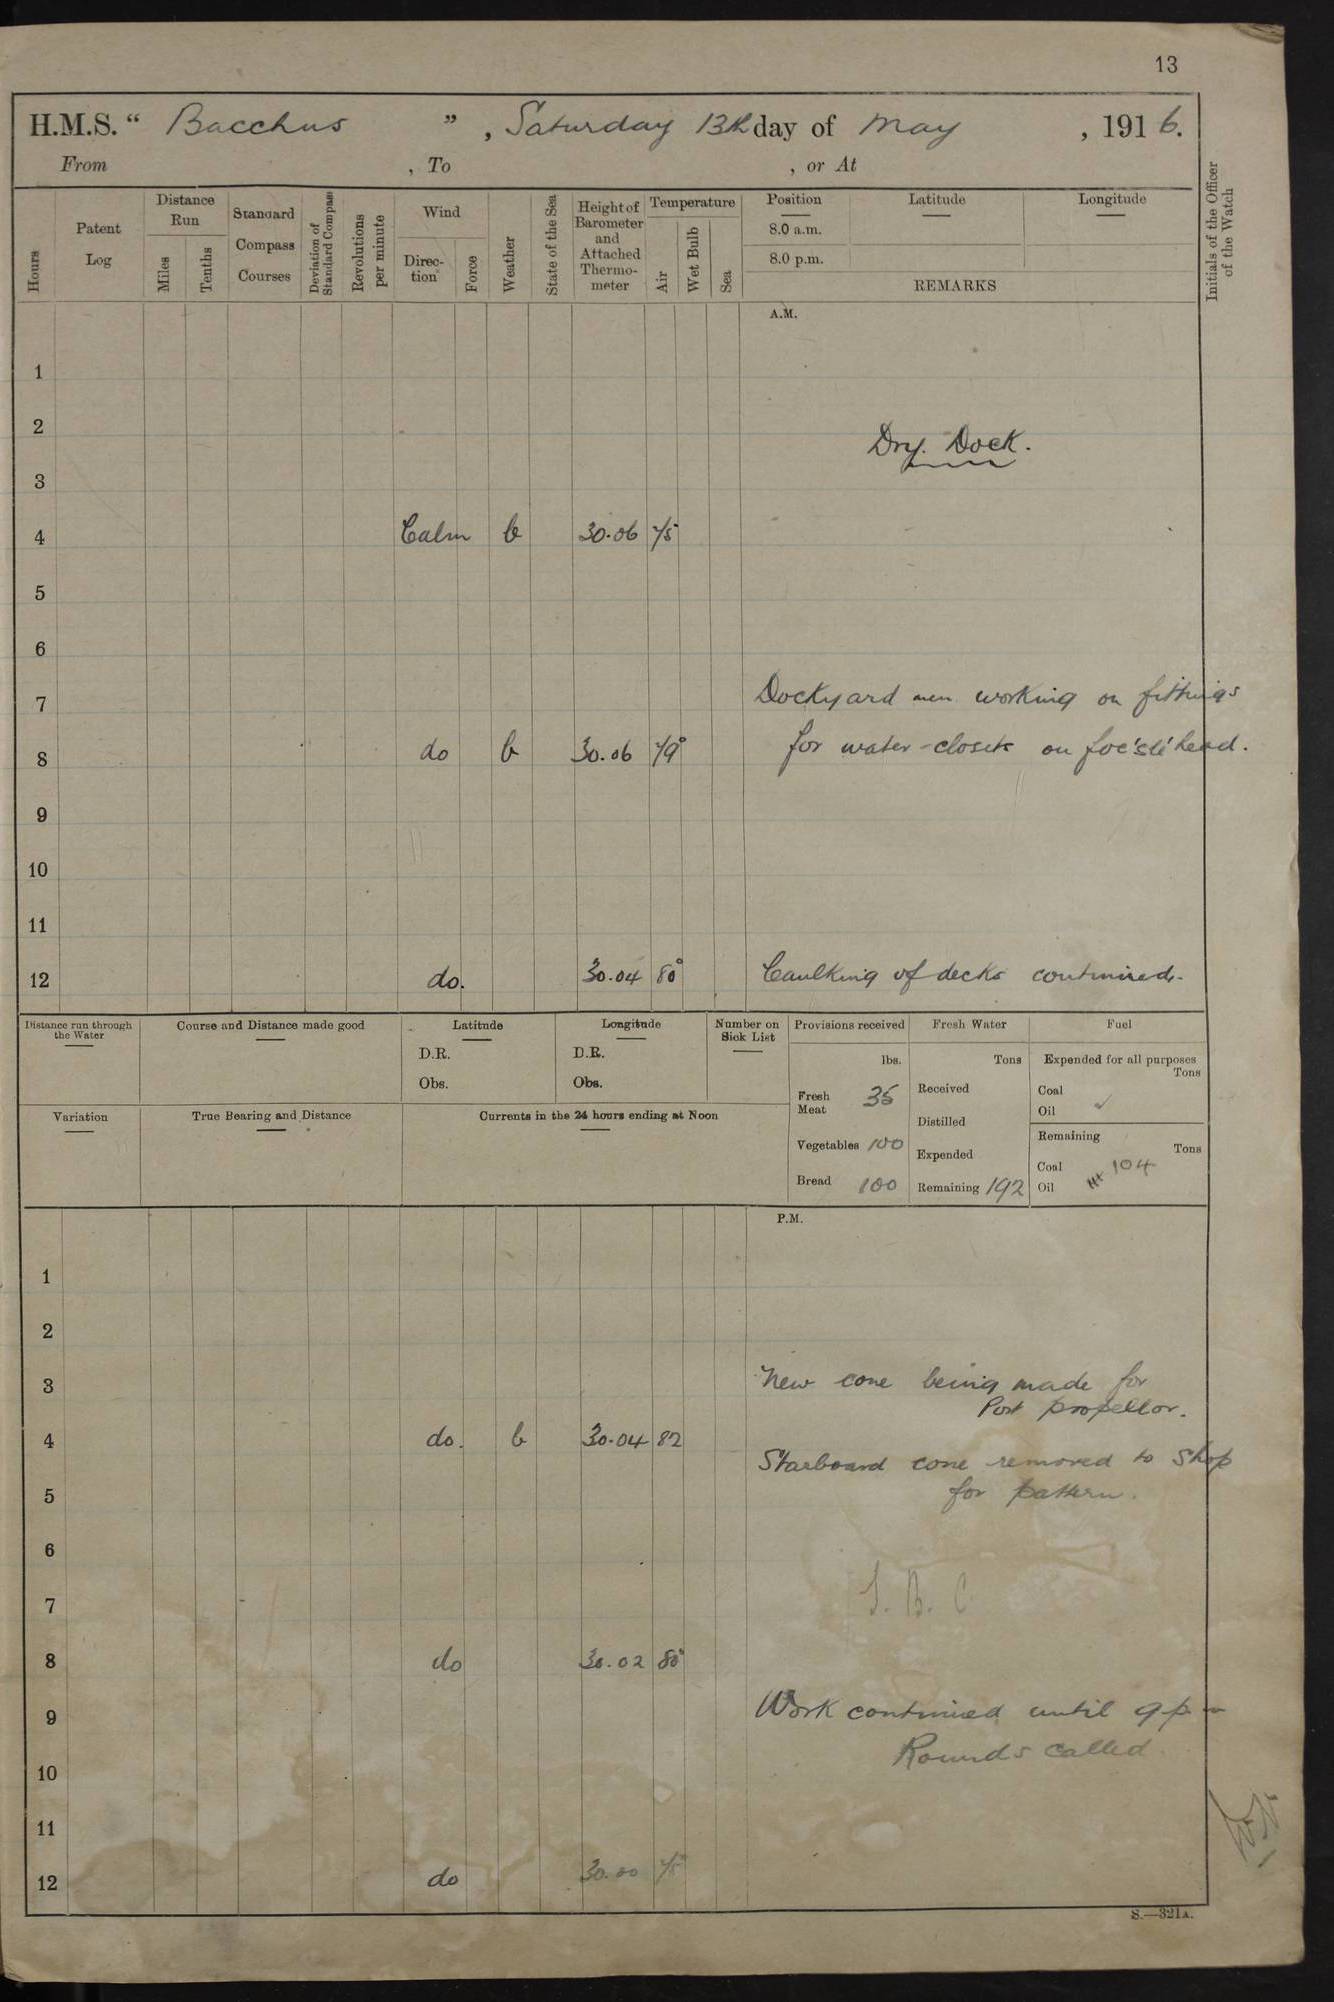 13
H.M.S. “ Bacchus ” , Saturday 13th day of May , 1916.
From , To , or At
Hours
Patent Log
Distance Run
Miles
Tenths
Standard Compass Courses
Deviation of Standard Compass
Revolutions per minute
Wind
Direc-tion
Force
Weather
State of the Sea
Height of Barometer and Attached Thermo-meter
Temperature
Air
Wet Bulb
Sea
Position Latitude Longitude
8.0 a.m.
8.0 p.m.
REMARKS
Initials of the Officer of the Watch
A.M.
1
2
Dry. Dock.
3
4 Calm b 30.06 75
5
6
7 Dockyard men working on fittings
8 do b 30.06 79° for water-closets on foc'sle' head.
9
10
11
12 do. 30.04 80° Caulking of decks continued.
Distance run through the Water
Course and Distance made good
Latitude
D.R.
Obs.
Longitude
D.R.
Obs.
Number on Sick List
Provisions received
lbs.
Fresh Meat 35
Vegetables 100
Bread 100
Fresh Water
Tons
Received
Distilled
Expended
Remaining 192
Fuel
Expended for all purposes
Tons
Coal
Oil ✓
Remaining
Tons
Coal 104
Oil
Variation
True Bearing and Distance
Currents in the 24 hours ending at Noon
P.M.
1
2
3 New cone being made for
Port propellor.
4 do. b 30.04 82
Starboard cone removed to shop
5 for pattern.
6
7
8 do 30.02 80°
9 Work continued until 9 p.m
Rounds called.
10
11
12 do 30.00 75°
S.—321A.